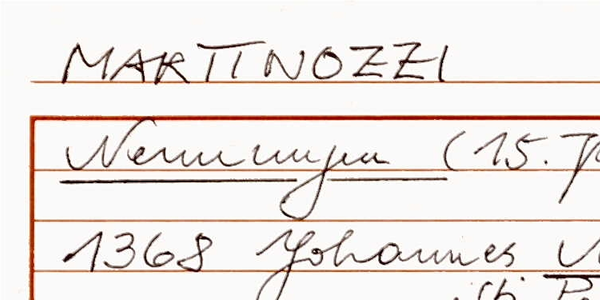 MARTINOZZI
Nenningen (15.
1368 Johannes